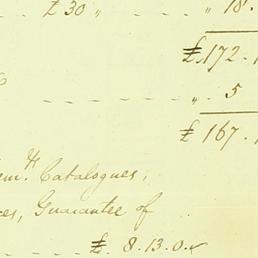 £30 " " 18.
£172.
" 5
£ 167.
Catalogues,
Guarantee of
£ 8.13.0.